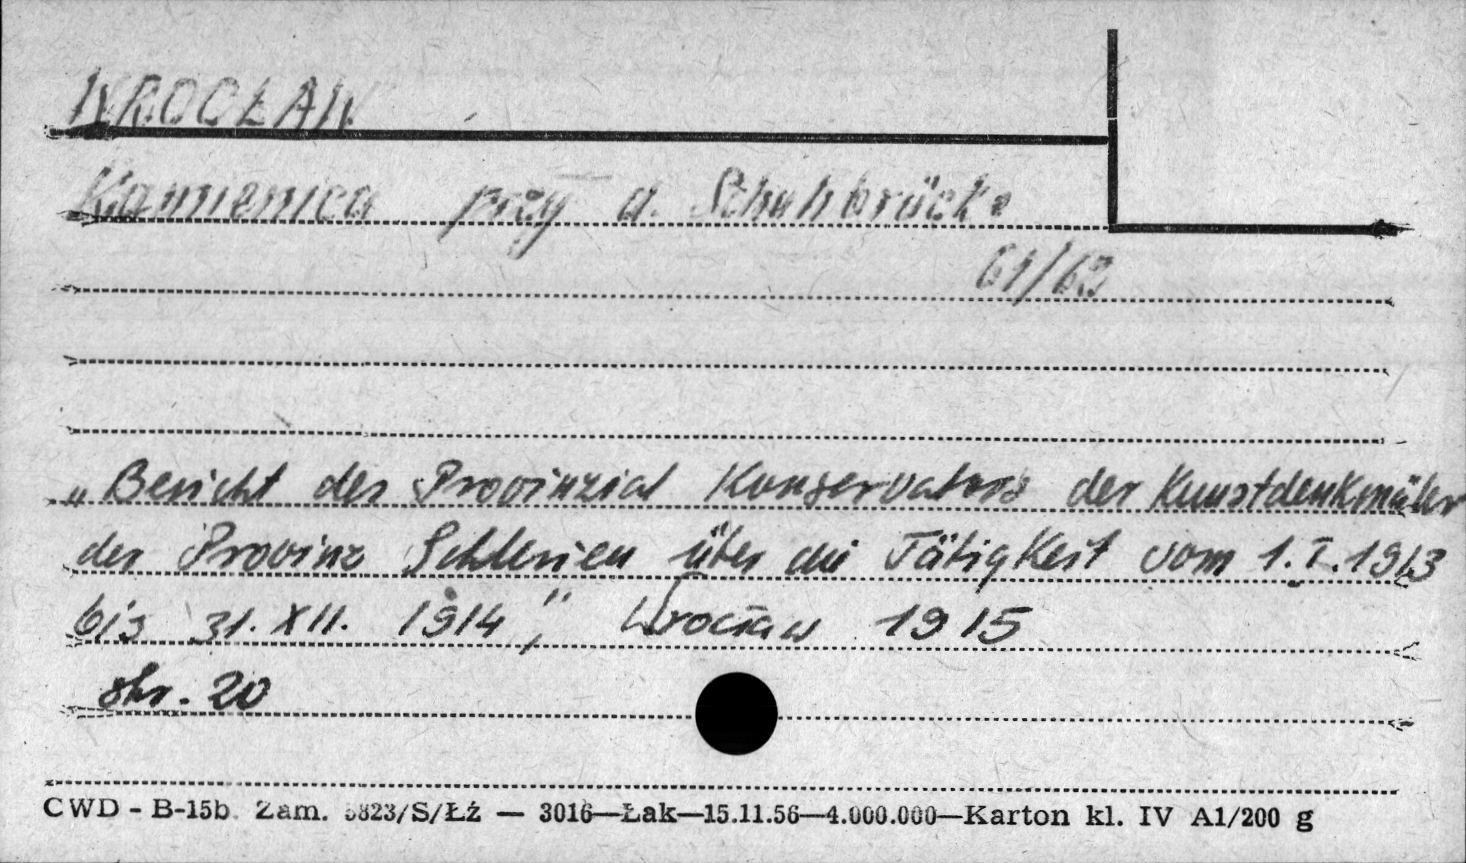 WROCŁAW
Kamienica przy d. Schuhbrücke
61/62
„Bericht des Provinzial Konservators der Kunstdenkmäler
der Provinz Schlesien über die Tätigkeit vom 1.I.1913
bis 31.XII. 1914”, Wrocław 1915
str. 20
CWD - B-15b. Zam. 5823/S/Łź — 3016—Łak—15.11.56—4.000.000—Karton kl. IV A1/200 g